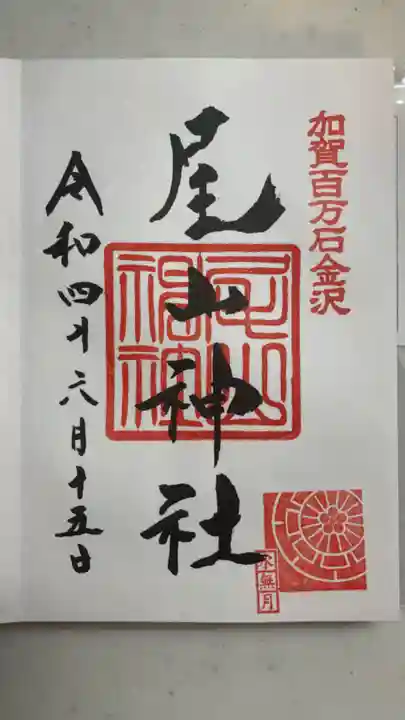 加賀百万石金沢
尾山神社
尾山神社
令和四年六月十五日
水無月